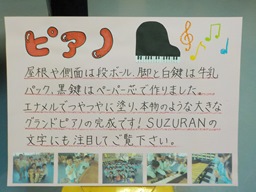 ピアノ
屋根や側面は段ボール、脚と白鍵は牛乳
パック、黒鍵はペーパー芯で作りました。
エナメルでつやつやに塗り、本物のような大きな
グランドピアノの完成です!SUZURANの
文字にも注目してご覧下さい。